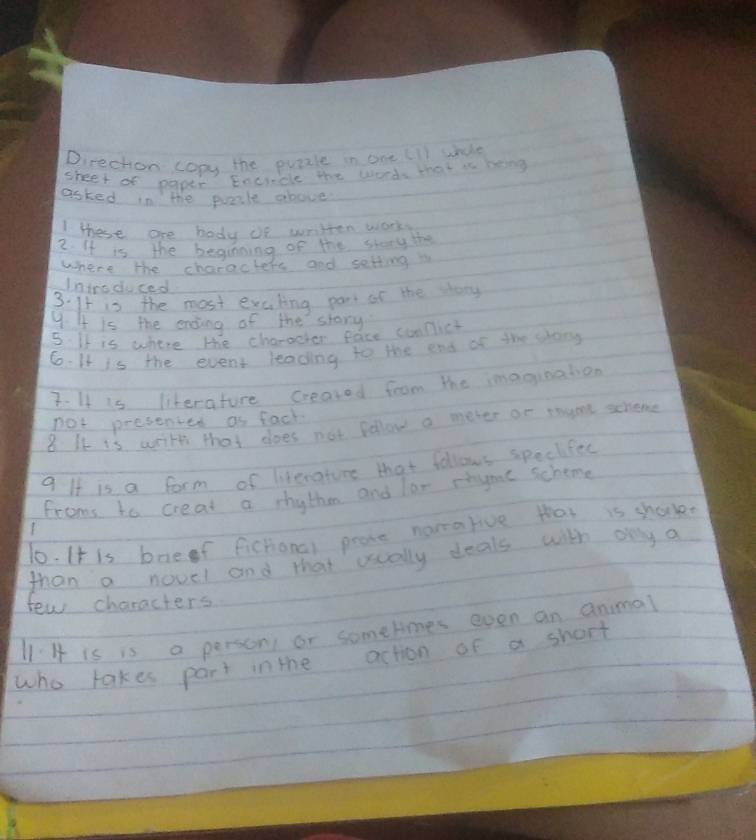 Direction copy the puzzle in one (1) whole
sheet of paper Encircle the words that is being
asked in the puzzle above.
1 these are body of written works
2. It is the beginning of the story the
where the characters and setting is
Introduced.
3. It is the most exciting part of the story
4 It is the ending of the story.
5. It is where the character face conflict
6. It is the event leading to the end of the story
7. It is literature created from the imagination
not presented as fact.
8 It is writh that does not follow a meter or rhyme scheme
9 It is a form of literature that follows speclifec
froms to creat a rhythm and/or rhyme scheme
1
10. It is brieof fictional prose narrative that is shorter
than a novel and that usually deals with only a
few characters.
11. It is is a person, or sometimes even an animal
who takes part in the action of a short